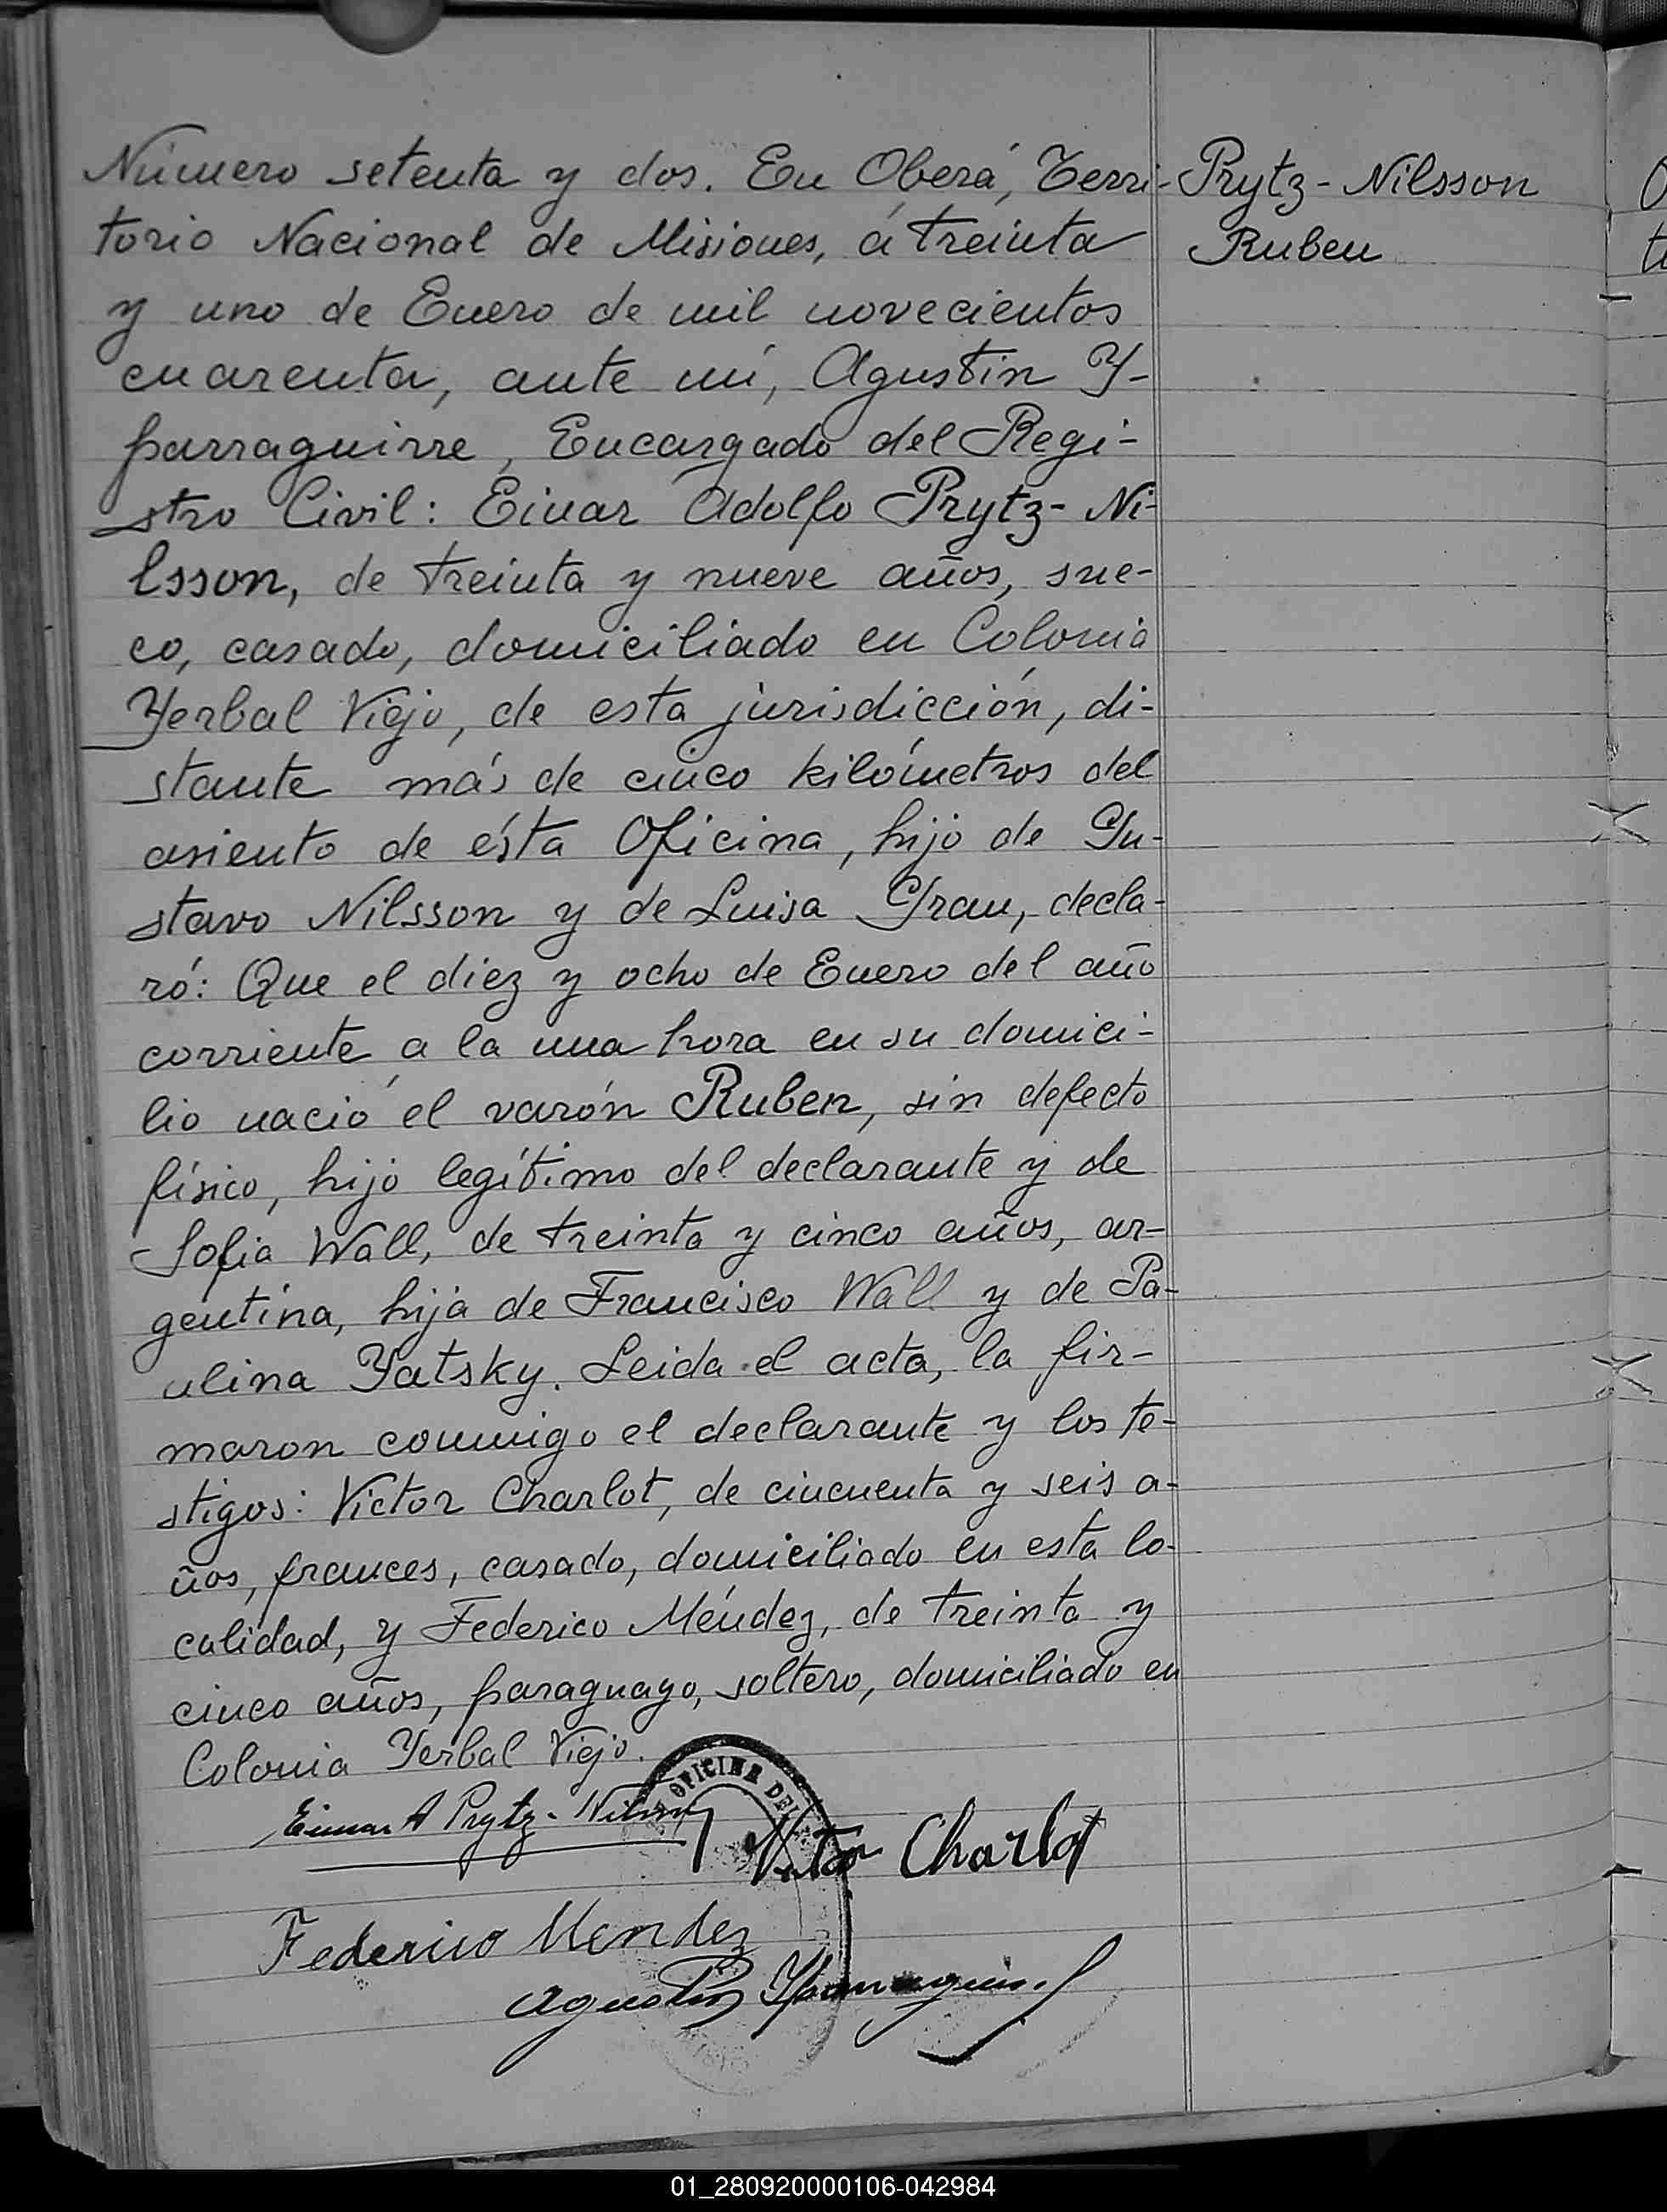 Número setenta y dos. En Oberá, Terri-
torio Nacional de Misiones, á treinta
y uno de Enero de mil novecientos
cuarenta, ante mí, Agustin Y-
parraguirre, Encargado del Regi-
stro Civil: Einar Adolfo Prytz-Ni-
lsson, de treinta y nueve años, sue-
co, casado, domiciliado en Colonia
Yerbal Viejo, de esta jurisdicción, di-
stante más de cinco kilómetros del
asiento de ésta Oficina, hijo de Gu-
stavo Nilsson y de Luisa Grau, decla-
ró: Que el diez y ocho de Enero del año
corriente a la una hora en su domici-
lio nació el varón Ruben, sin defecto
físico, hijo legítimo del declarante y de
Sofia Wall, de treinta y cinco años, ar-
gentina, hija de Francisco Wall y de Pa-
ulina Yatsky. Leida el acta, la fir-
maron conmigo el declarante y los te-
stigos: Victor Charlot, de cincuenta y seis a-
ños, frances, casado, domiciliado en esta lo-
calidad, y Federico Méndez, de treinta y
cinco años, paraguayo, soltero, domiciliado en
Colonia Yerbal Viejo.
Prytz-Nilsson
Ruben
OFICINA DEL
Einar A Prytz-Nilsson
Victor Charlot
Federico Mendez
Agustin Yparraguirre
01_280920000106-042984